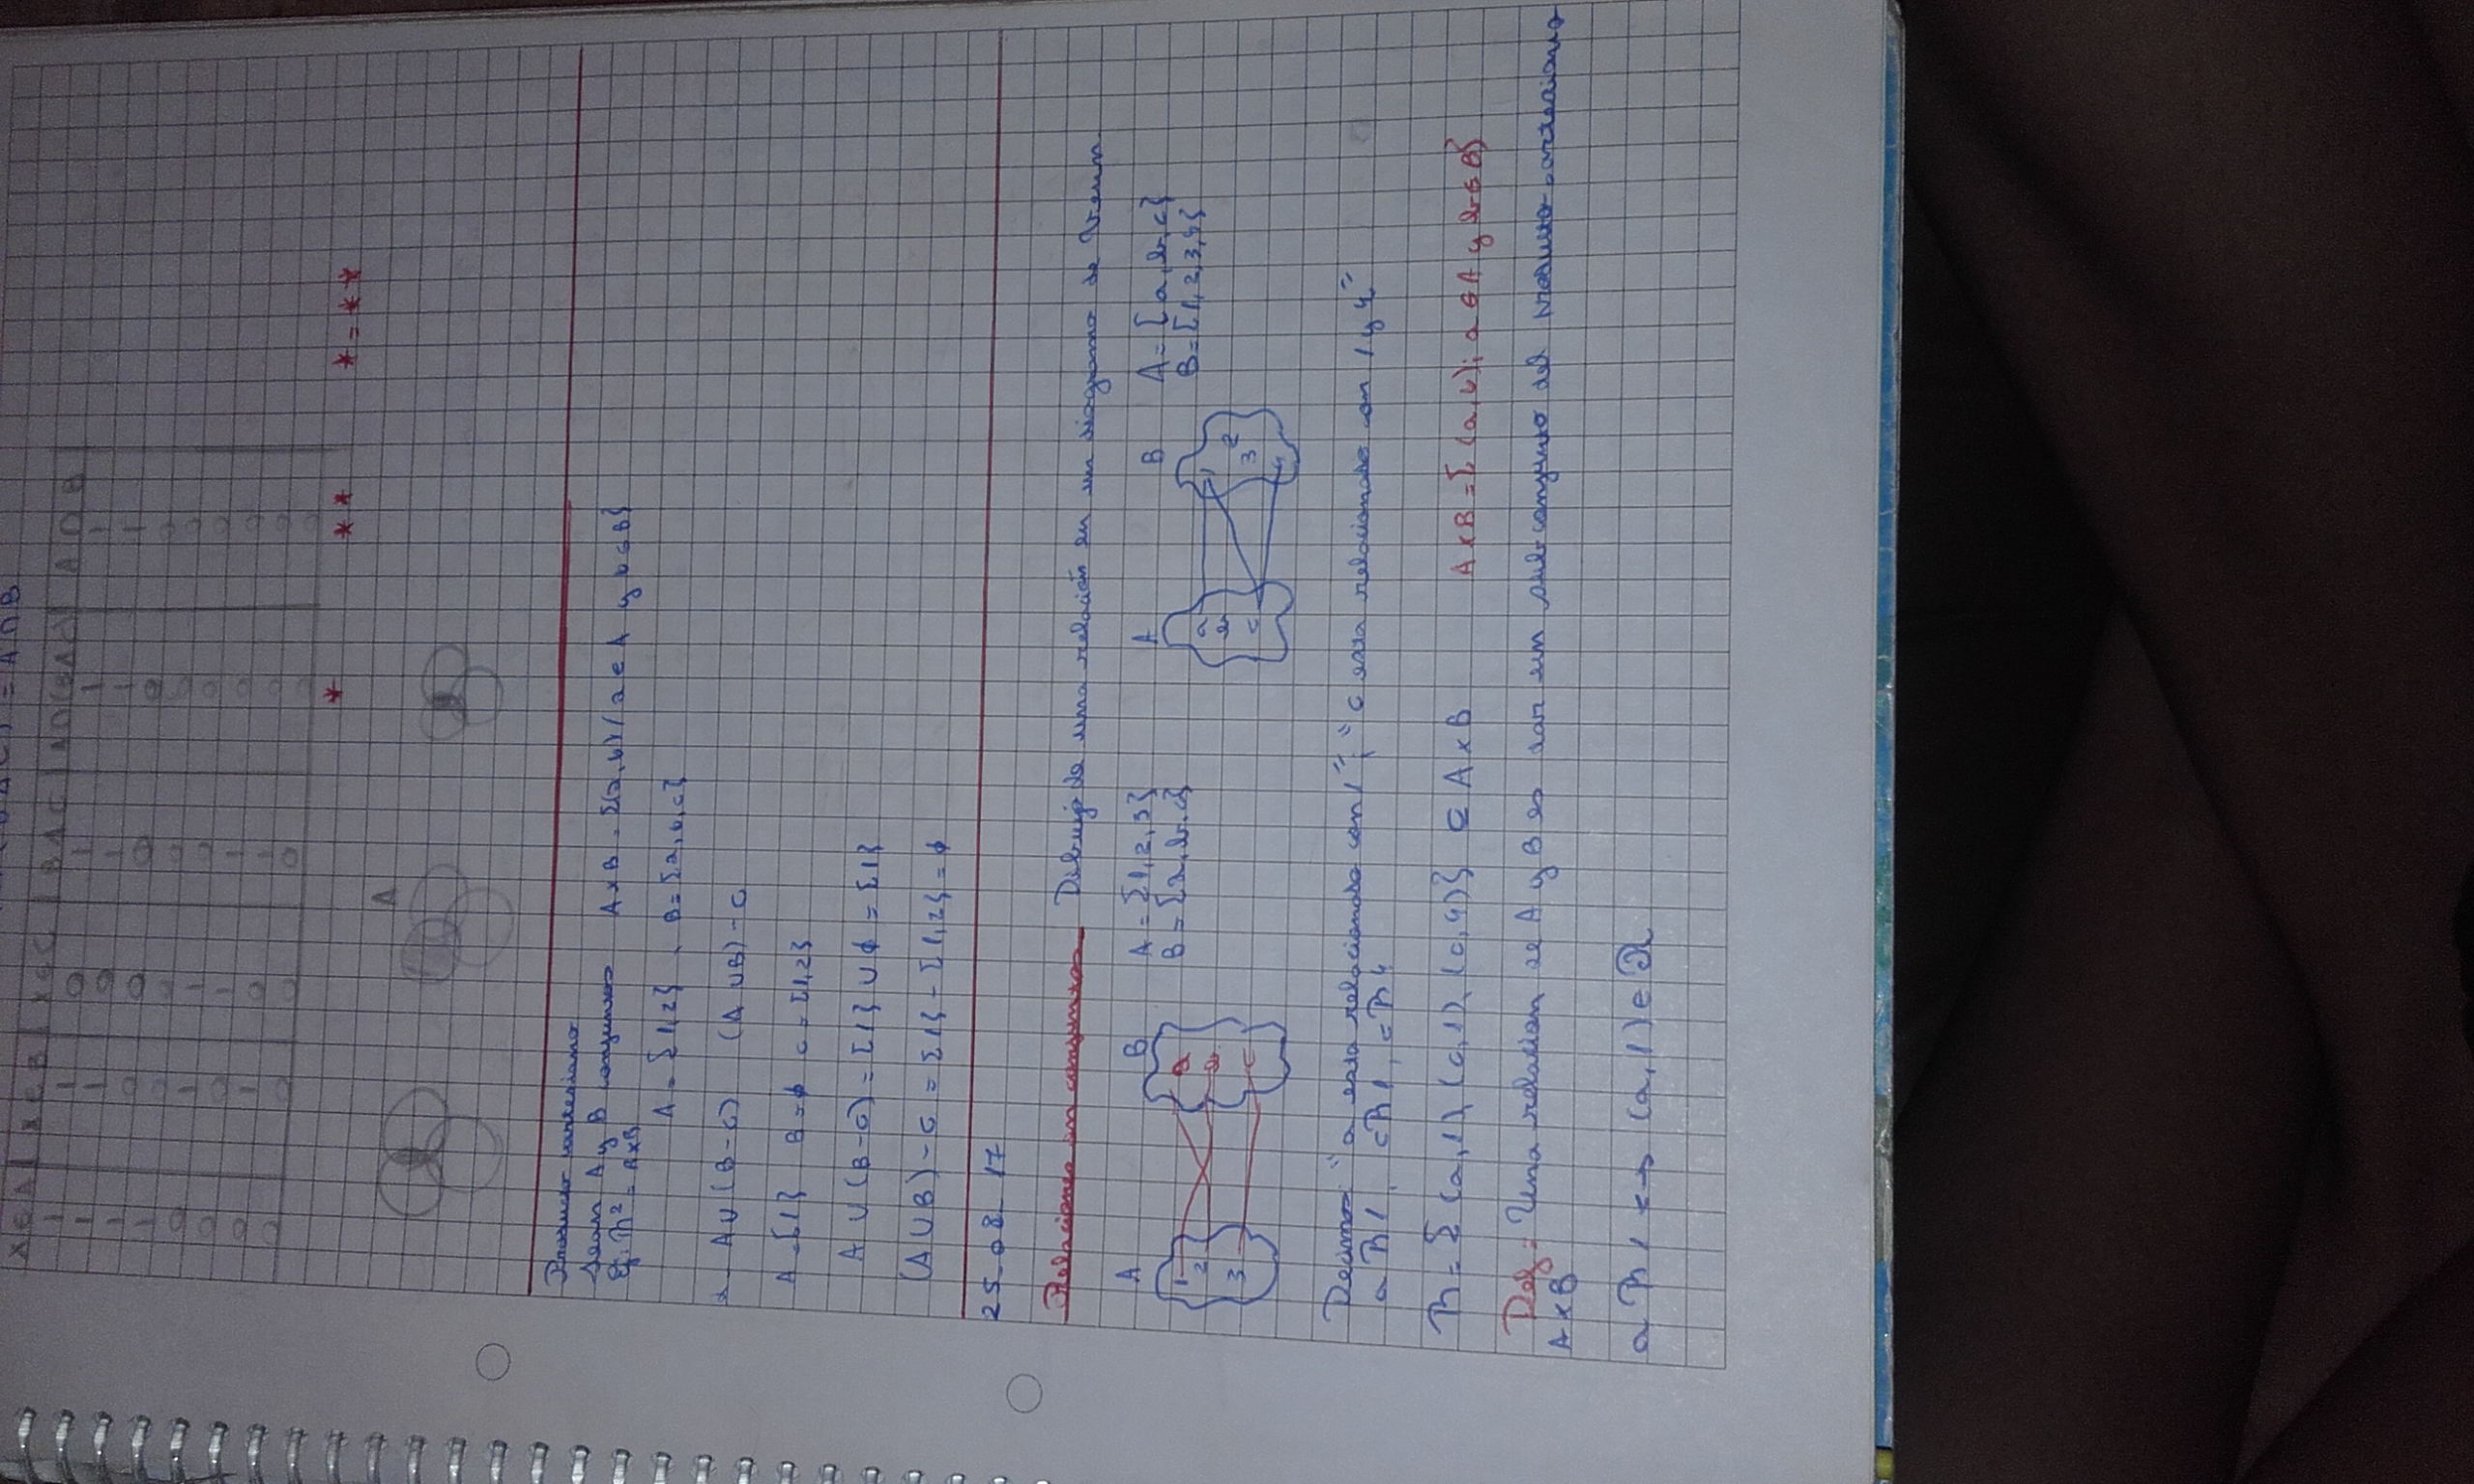 = A ∩ B
x ∈ A | x ∈ B | x ∈ C | B Δ C | A ∩ (B Δ C) | A ∩ B
* ** * = **
A
Producto cartesiano
Sean A y B conjuntos A x B = {(a, b) / a ∈ A y b ∈ B}
Ej: R² = RxR
A = {1,2} B = {a, b, c}
A ∪ (B - C) (A ∪ B) - C
A = {1} B = ϕ C = {1,2}
A ∪ (B - C) = {1} ∪ ϕ = {1}
(A ∪ B) - C = {1} - {1,2} = ϕ
25-08-17
Relaciones en conjuntos Dibujo de una relación en un diagrama de Venn
A B A = {1,2,3} A B A = {a, b, c}
B = {a, b, c} B = {1,2,3,4}
1 a a 1
2 b b 2
3 c c 3
4
Decimos: "a esta relacionado con 1", "c esta relacionado con 1 y 4"
a R 1, c R 1, c R 4
R = {(a,1), (c,1), (c,4)} ⊆ A x B A x B = {(a, b); a ∈ A y b ∈ B}
Def: Una relacion de A y B es dar un subconjunto del producto cartesiano
A x B
a R 1 ↔ (a,1) ∈ R